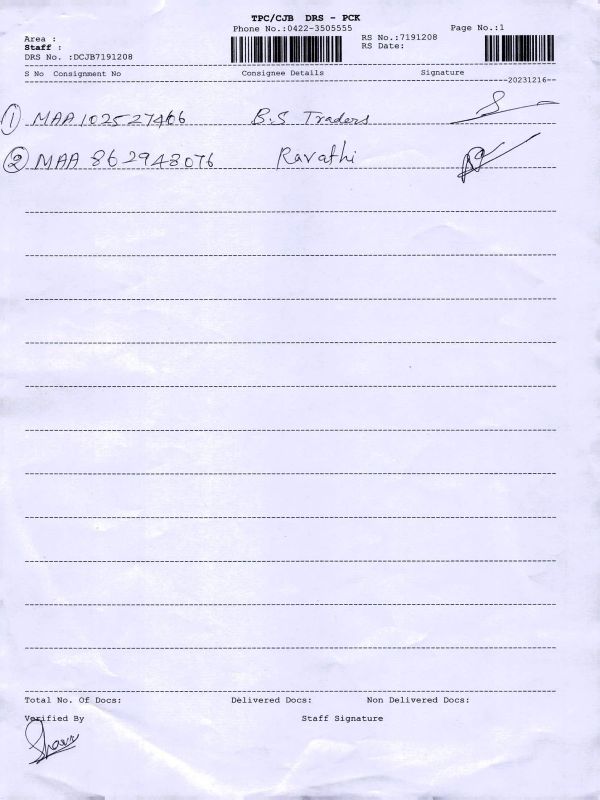 TPC/CJB DRS - PCK
Phone No.:0422-3505555 Page No.:1
Area : RS No.:7191208
Staff : RS Date:
DRS No. :DCJB7191208
S No Consignment No Consignee Details Signature
20231216
1 MAA102527466 B.S Traders
2 MAA 862948076 Ravathi
Total No. Of Docs: Delivered Docs: Non Delivered Docs:
Verified By Staff Signature